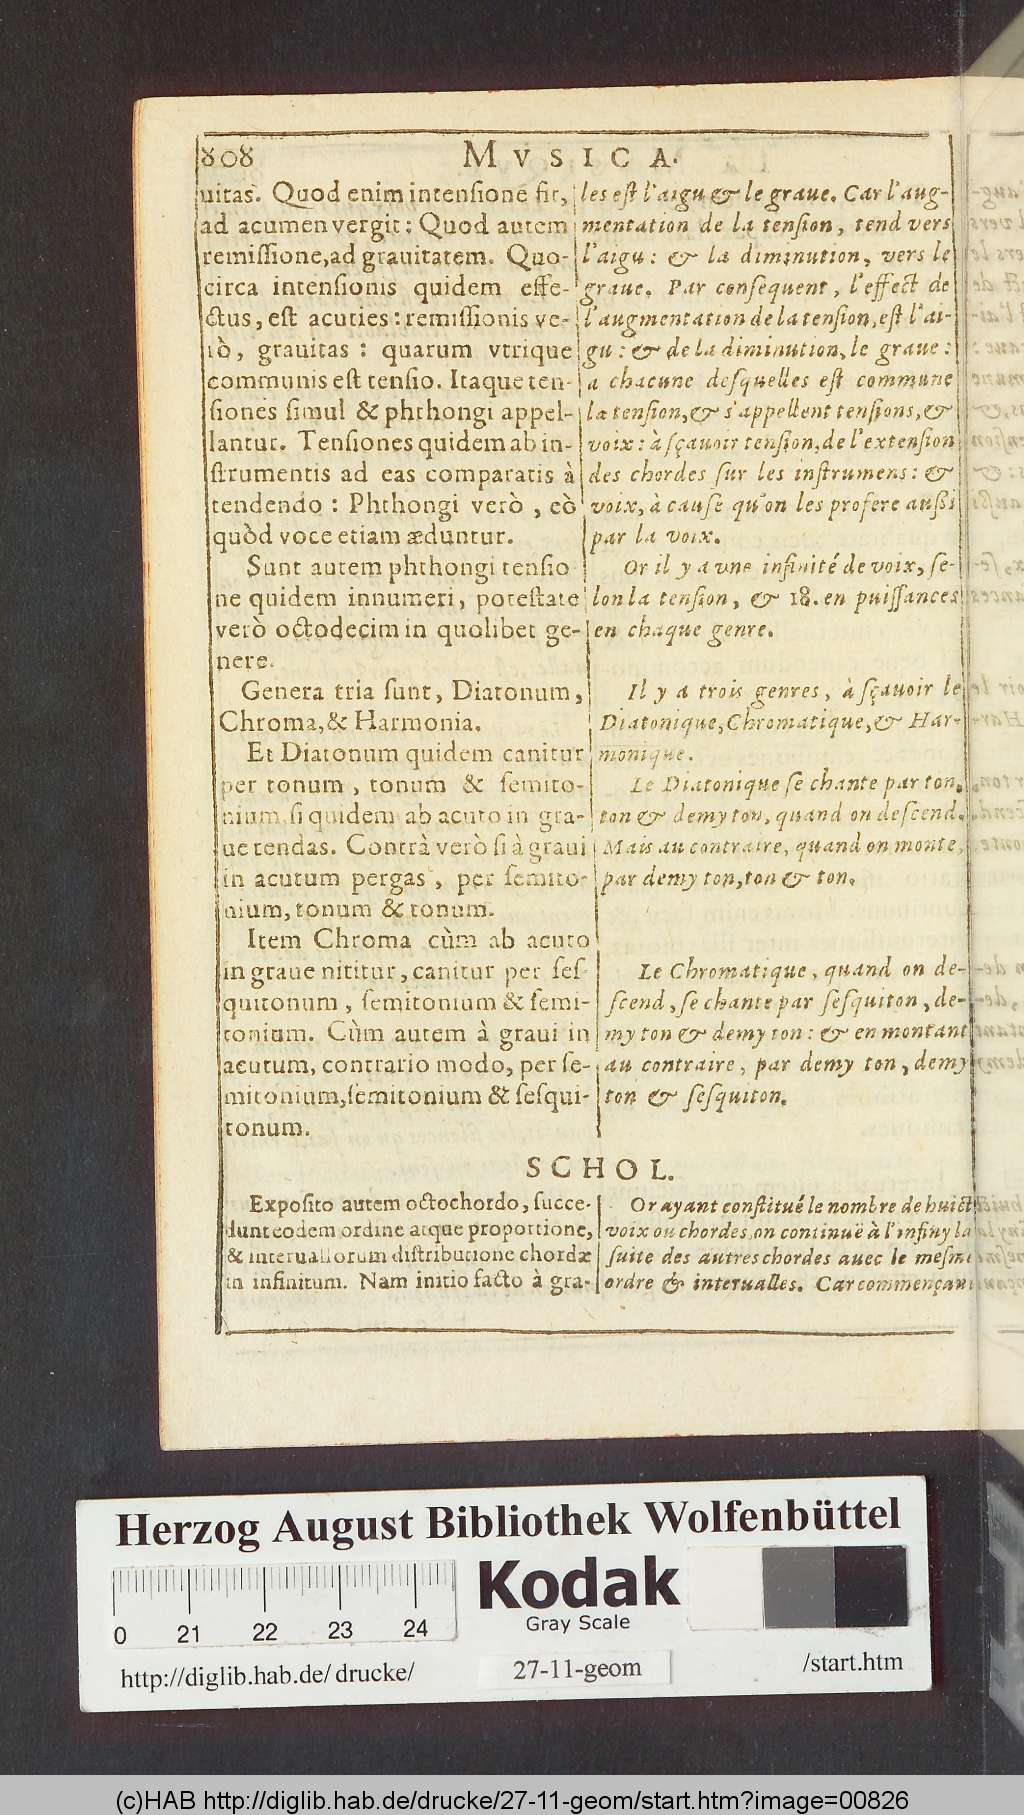 808
MVSICA.
uitas. Quod enim intensione fit,
ad acumen vergit: Quod autem
remissione, ad grauitatem. Quo-
circa intensionis quidem effe-
ctus, est acuties: remissionis ve-
rò, grauitas: quarum vtrique
communis est tensio. Itaque ten-
siones simul & phthongi appel-
lantur. Tensiones quidem ab in-
strumentis ad eas comparatis à
tendendo: Phthongi verò, eò
quòd voce etiam æduntur.
Sunt autem phthongi tensio
ne quidem innumeri, potestate
verò octodecim in quolibet ge-
nere.
Genera tria sunt, Diatonum,
Chroma, & Harmonia.
Et Diatonum quidem canitur
per tonum, tonum & semito-
nium, si quidem ab acuto in gra-
ue tendas. Contrà verò si à graui
in acutum pergas, per semito-
nium, tonum & tonum.
Item Chroma cùm ab acuto
in graue nititur, canitur per ses
quitonum, semitonium & semi-
tonium. Cùm autem à graui in
acutum, contrario modo, per se-
mitonium, semitonium & sesqui-
tonum.
les est l'aigu & le graue. Car l'aug-
mentation de la tension, tend vers
l'aigu: & la diminution, vers le
graue. Par consequent, l'effect de
l'augmentation de la tension, est l'ai-
gu: & de la diminution, le graue:
a chacune desquelles est commune
la tension, & s'appellent tensions, &
voix: à sçauoir tension, de l'extension
des chordes sur les instrumens: &
voix, à cause qu'on les profere aussi
par la voix.
Or il y a vne infinité de voix, se-
lon la tension, & 18. en puissances
en chaque genre.
Il y a trois genres, à sçauoir le
Diatonique, Chromatique, & Har-
monique.
Le Diatonique se chante par ton,
ton & demy ton, quand on descend.
Mais au contraire, quand on monte,
par demy ton, ton & ton.
Le Chromatique, quand on de-
scend, se chante par sesquiton, de-
my ton & demy ton: & en montant
au contraire, par demy ton, demy
ton & sesquiton.
SCHOL.
Exposito autem octochordo, succe-
dunt eodem ordine atque proportione,
& interuallorum distributione chordæ
in infinitum. Nam initio facto à gra-
Or ayant constitué le nombre de huict
voix ou chordes, on continuë à l'infiny la
suite des autres chordes auec le mesme
ordre & interualles. Car commençant
Herzog August Bibliothek Wolfenbüttel
0 21 22 23 24
Kodak
Gray Scale
http://diglib.hab.de/drucke/
27-11-geom
/start.htm
(c)HAB http://diglib.hab.de/drucke/27-11-geom/start.htm?image=00826